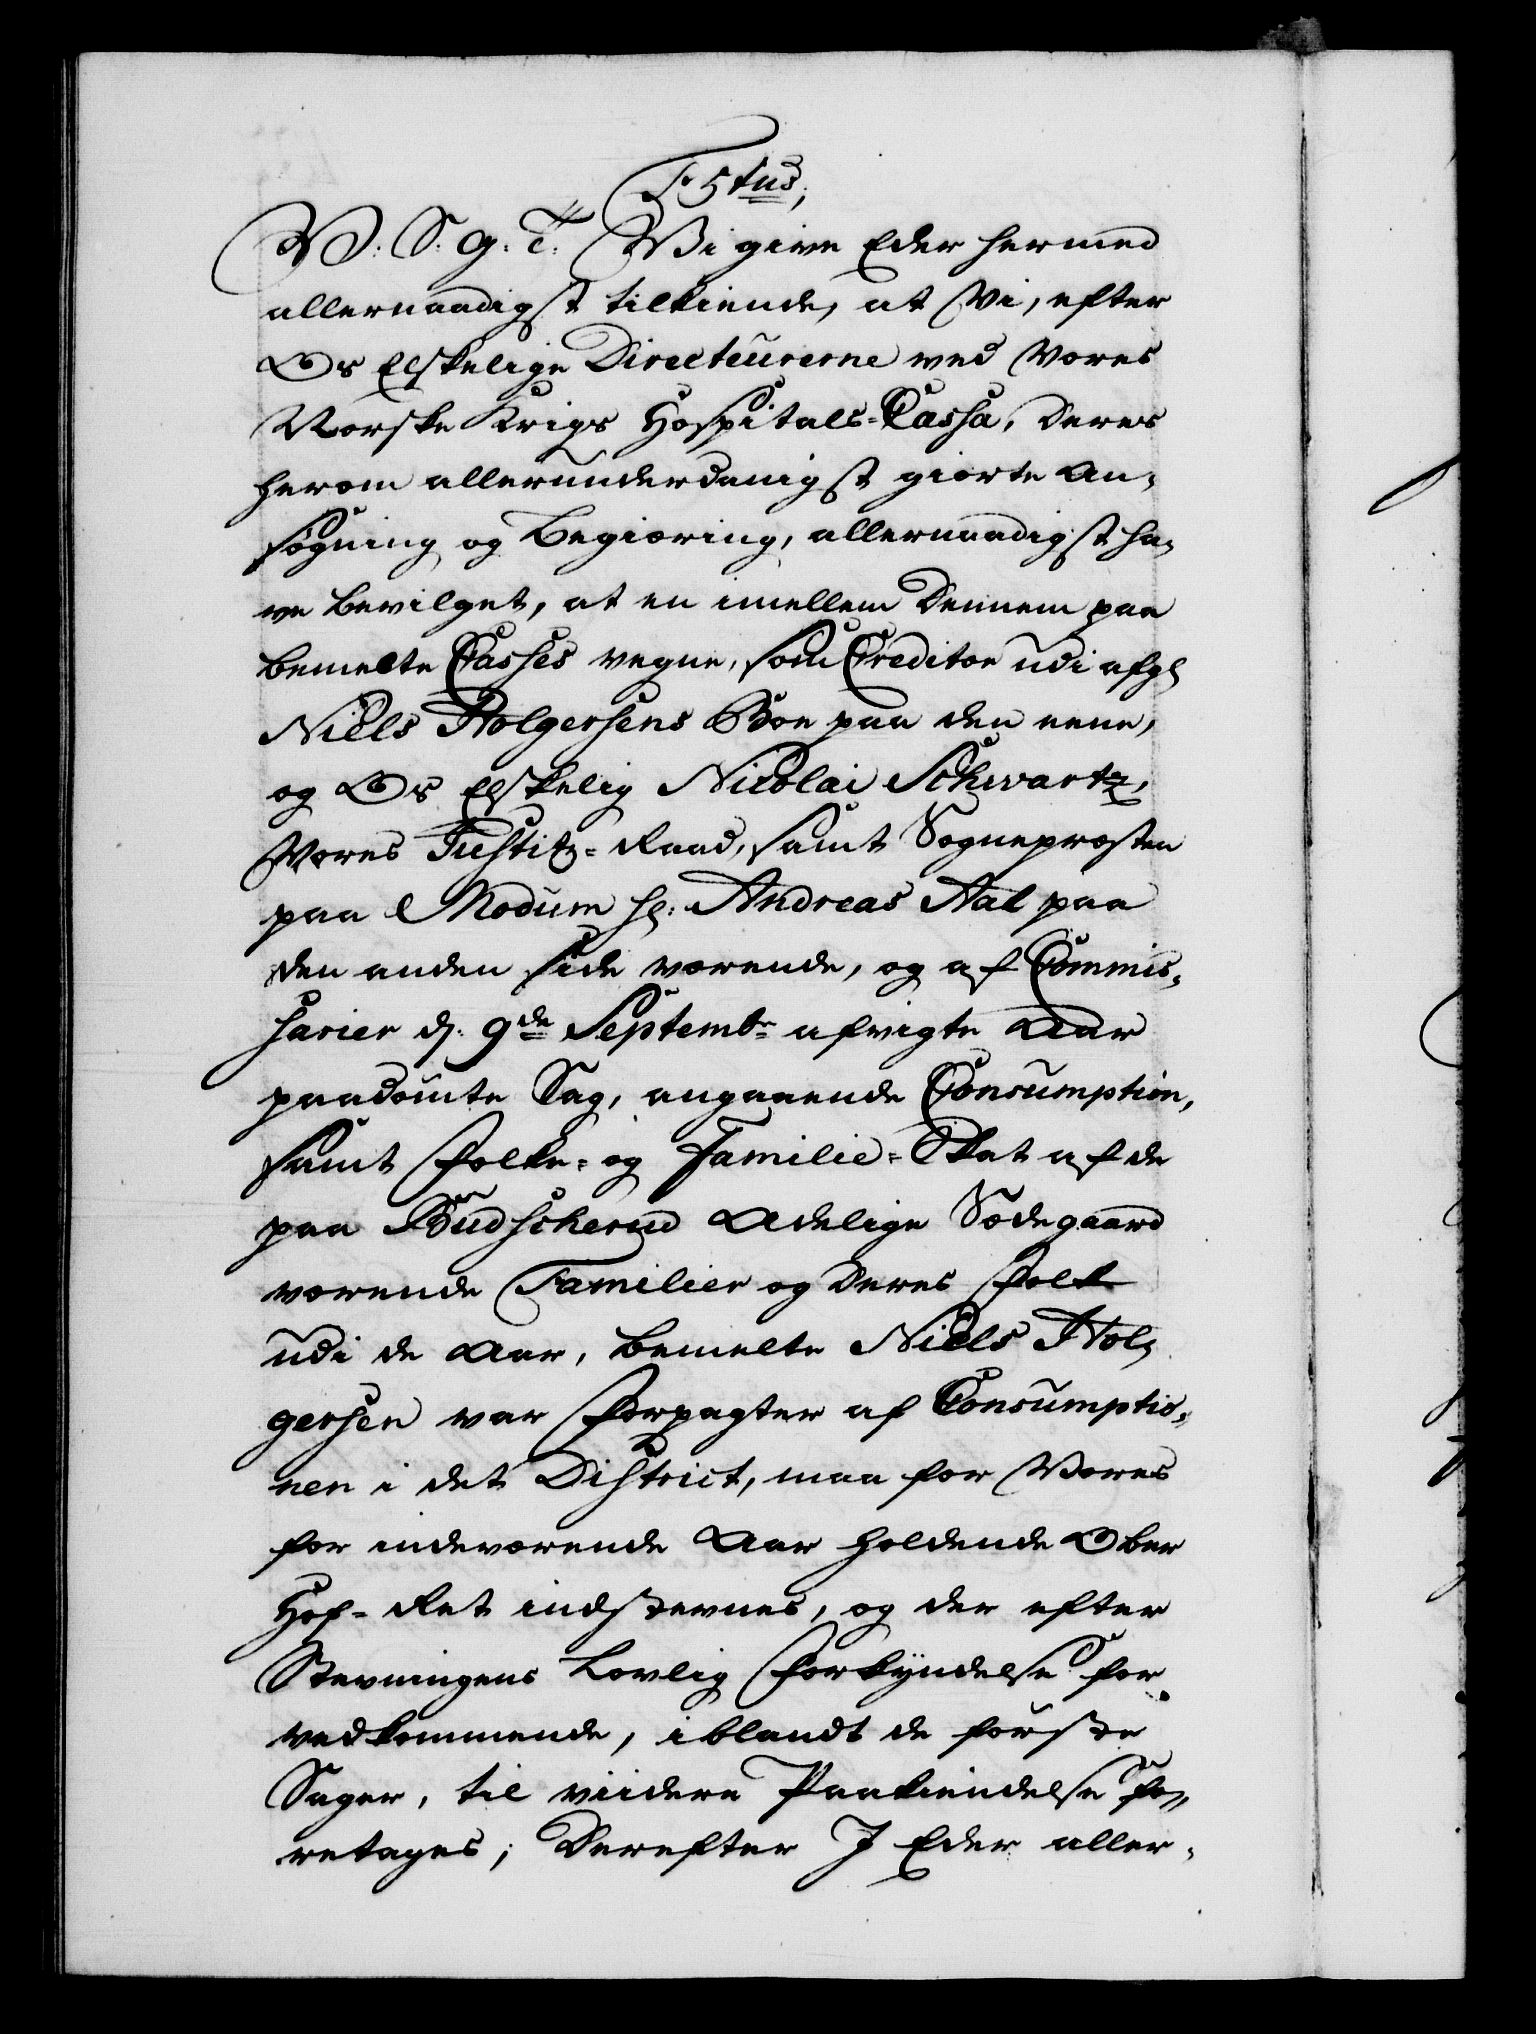 F 5tus,
W: S: G: T: Vi give Eder hermed
allernaadigst tilkiende, at Vi, efter
Os Elskelige Directeurerne ved Vores
Norske Krigs Hospitals-Cassa, deres
herom allerunderdanigst giorte An-
søgning og Begiæring, allernaadigst ha-
ve bevilget, at en imellem dennem paa
bemelte Casses vegne, som Creditor udi afgl
Niels Holgersens Boe paa den eene,
og Os Elskelig Nicolai Schwartz,
Vores Justitz-Raad, samt Sognepræsten
paa Modum Hr: Andreas Aal paa
den anden side værende, og af Commis-
sarier d. 9de Septembr afvigte Aar
paadømte Sag, angaaende Consumption,
samt Folke- og Familie-Skat af de
paa Budscherud Adelige Sædegaard
værende Familier og deres Folk
udi de Aar, bemelte Niels Hol-
gersen var Forpagter af Consumptio-
nen i det District, maa for Vores
for indeværende Aar holdende Ober
Hof-Ret indstevnes, og der efter
Stevningens Lovlig Forkyndelse for
vedkommende, iblandt de første
Sager, til viidere Paakiendelse fo-
retages; Derefter I Eder aller-